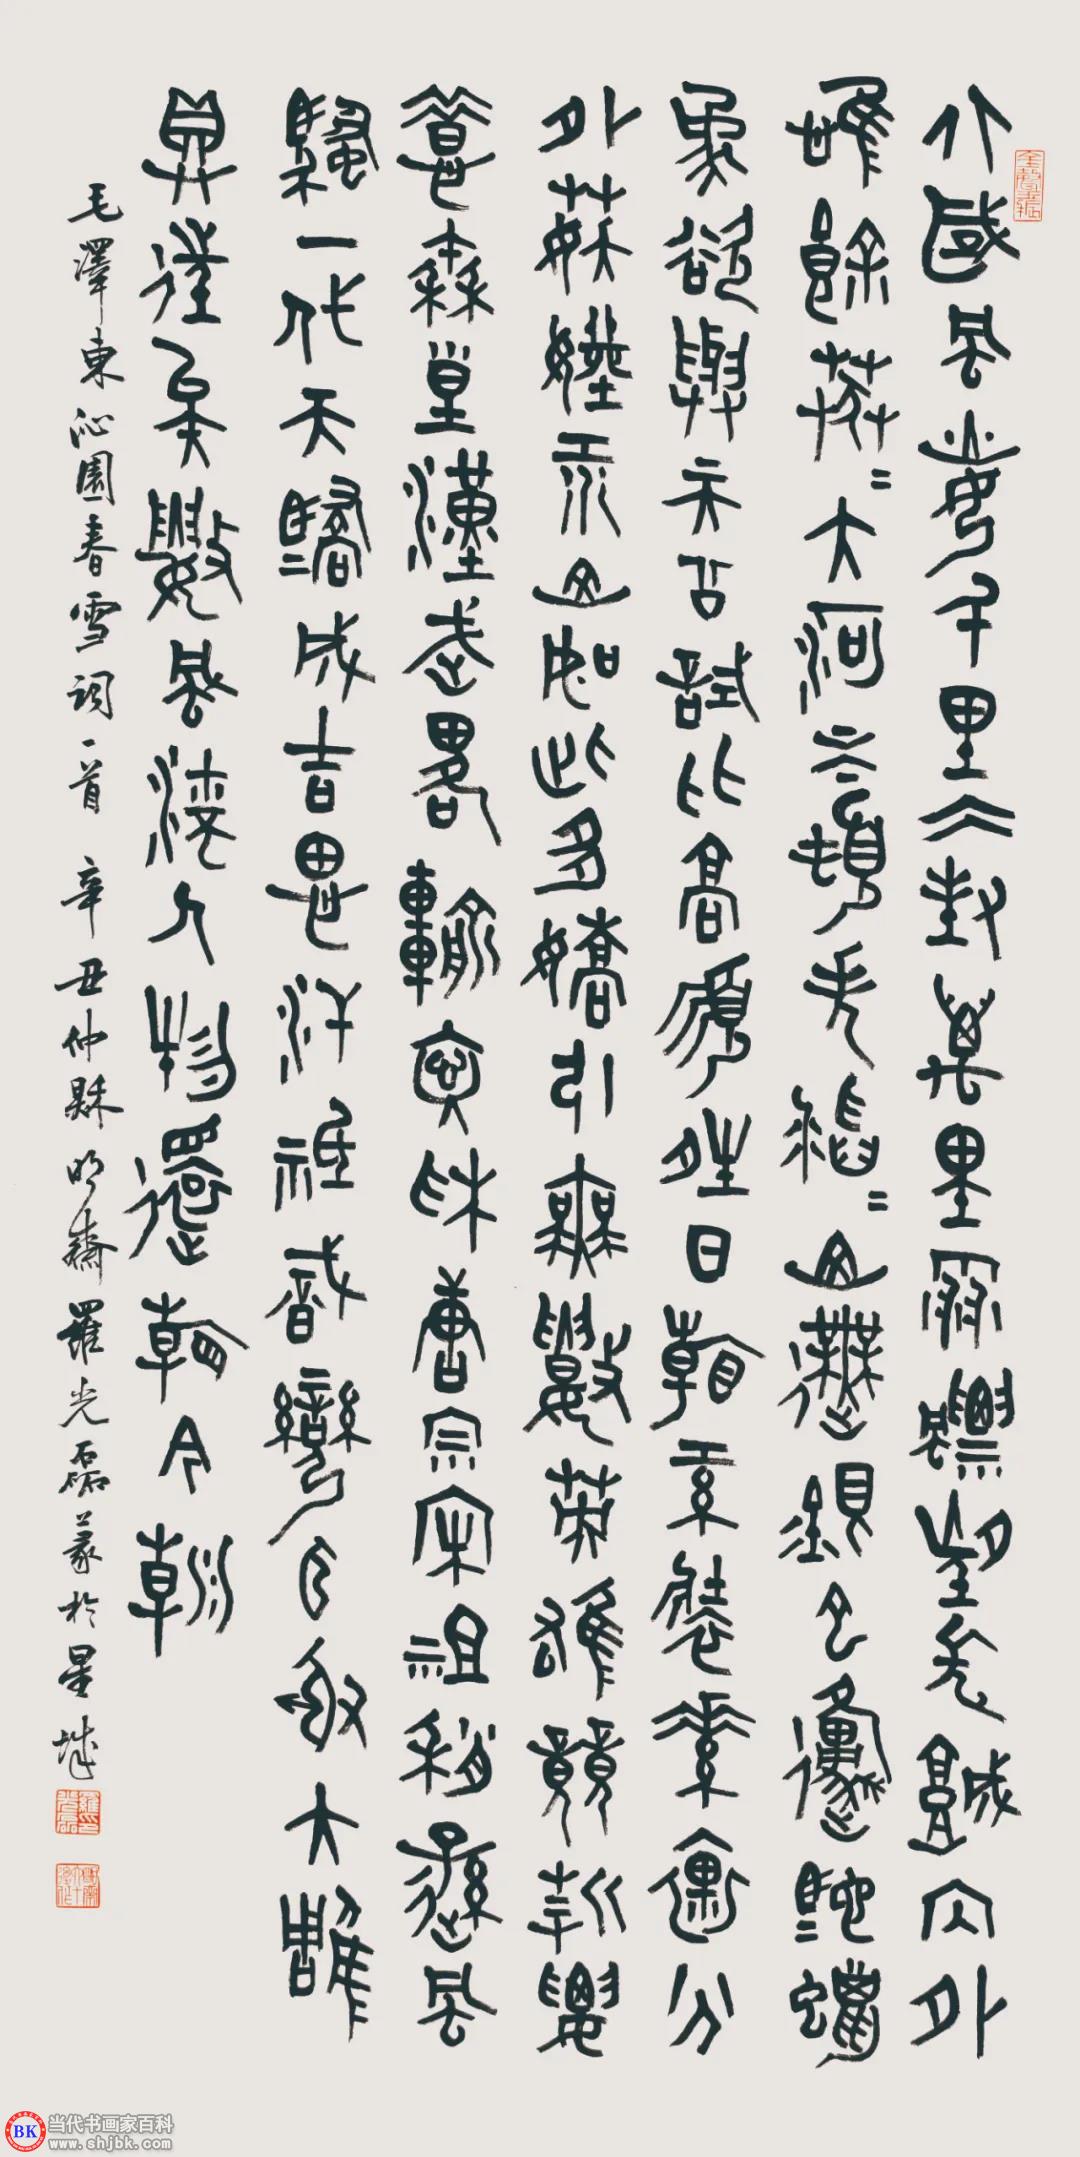 金聲玉振
北國風光千里冰封萬里雪飄望長城内外
惟餘莽〻大河上下頓失滔〻山舞銀蛇原馳蠟
象欲與天公試比高須晴日看紅裝素裹分
外妖嬈江山如此多嬌引無數英雄競折腰
惜秦皇漢武略輸文采唐宗宋祖稍遜風
騷一代天驕成吉思汗祗識彎弓射大雕
俱往矣數風流人物還看今朝
毛澤東沁園春雪詞一首 辛丑仲秌明齋羅光磊篆於星城
BK
当代书画家百科
www.shjbk.com